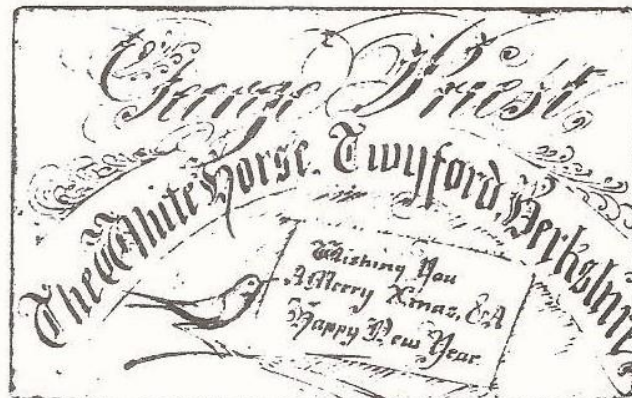 George Priest
The White Horse. Twyford, Berkshire
Wishing You
A Merry Xmas, & A
Happy New Year